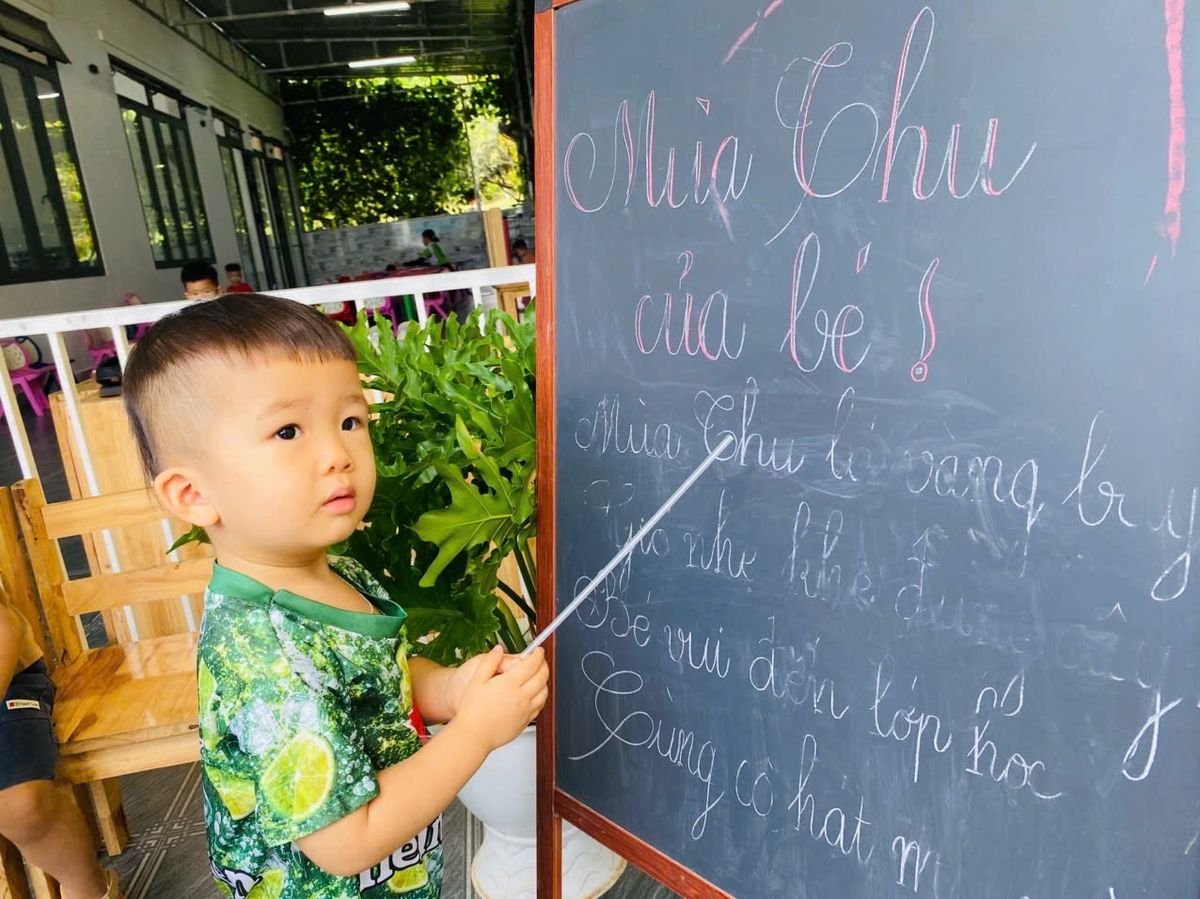 Mùa Thu
của bé!
Mùa Thu lá vàng bay
Gió nhẹ khẽ đung cây
Bé vui đến lớp học
Cùng cô hát m